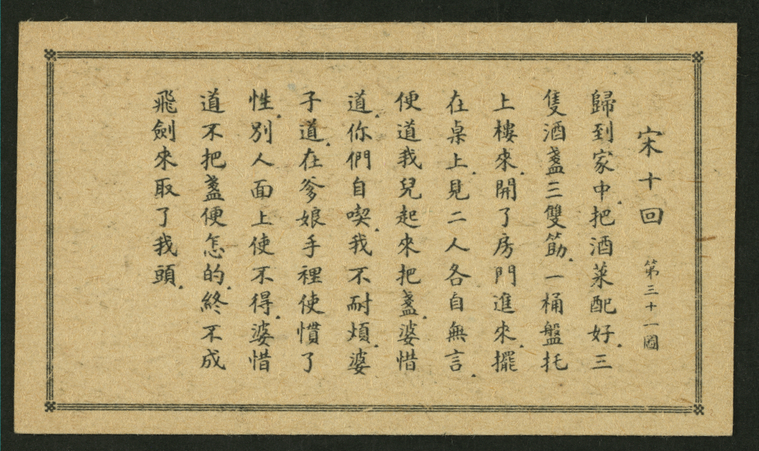 宋十回
第三十一圖
歸到家中.把酒菜配好.三
隻酒盞三雙筯.一桶盤托
上樓來.開了房門進來.擺
在桌上.見二人各自無言.
便道我兒起來把盞.婆惜
道.你們自喫.我不耐煩.婆
子道.在爹娘手裡使慣了
性.別人面上使不得.婆惜
道不把盞便怎的.終不成
飛劍來取了我頭.